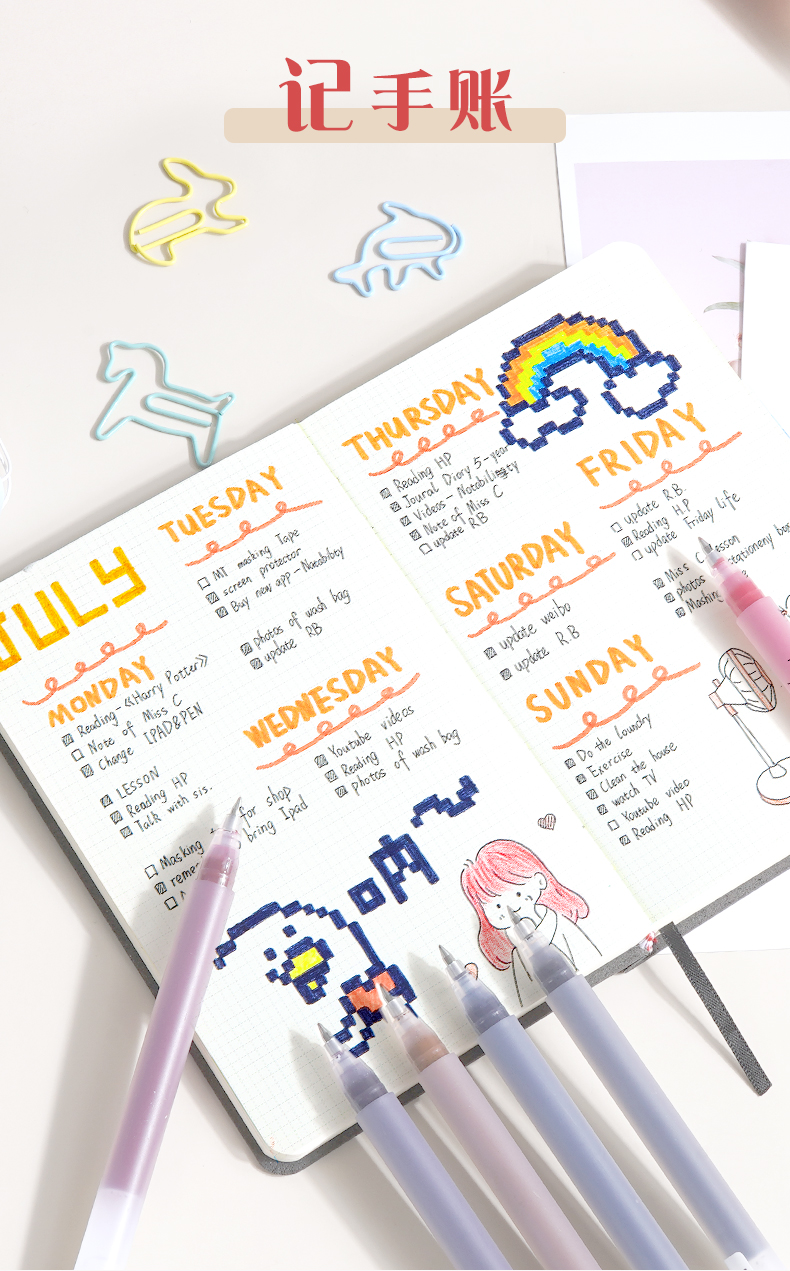 记手账
JULY
MONDAY
Reading-《Harry Potter》
Note of Miss C
Change IPAD&PEN
LESSON
Reading HP
Talk with sis.
Masking for shop
bring Ipad
TUESDAY
MT masking Tape
screen protector
Buy new app-Notability
photos of wash bag
update RB
WEDNESDAY
Youtube videos
Reading HP
photos of wash bag
THURSDAY
Reading HP
Joural Diary 5-year
Videos-Notability
Note of Miss C
update RB
FRIDAY
update R.B.
Reading H.P
update Friday life
Miss C lesson
photos stationery
SATURDAY
update weibo
update R.B
SUNDAY
Do the loundry
Exercise
Clean the house
watch TV
Youtube video
Reading HP